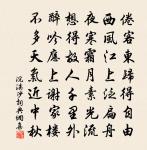 倦客東歸得自由
西風江上泛扁舟
夜寒霜月素光流
想得故人千里外
醉吟應上謝家樓
不多天氣近中秋
浣溪沙詞典網集